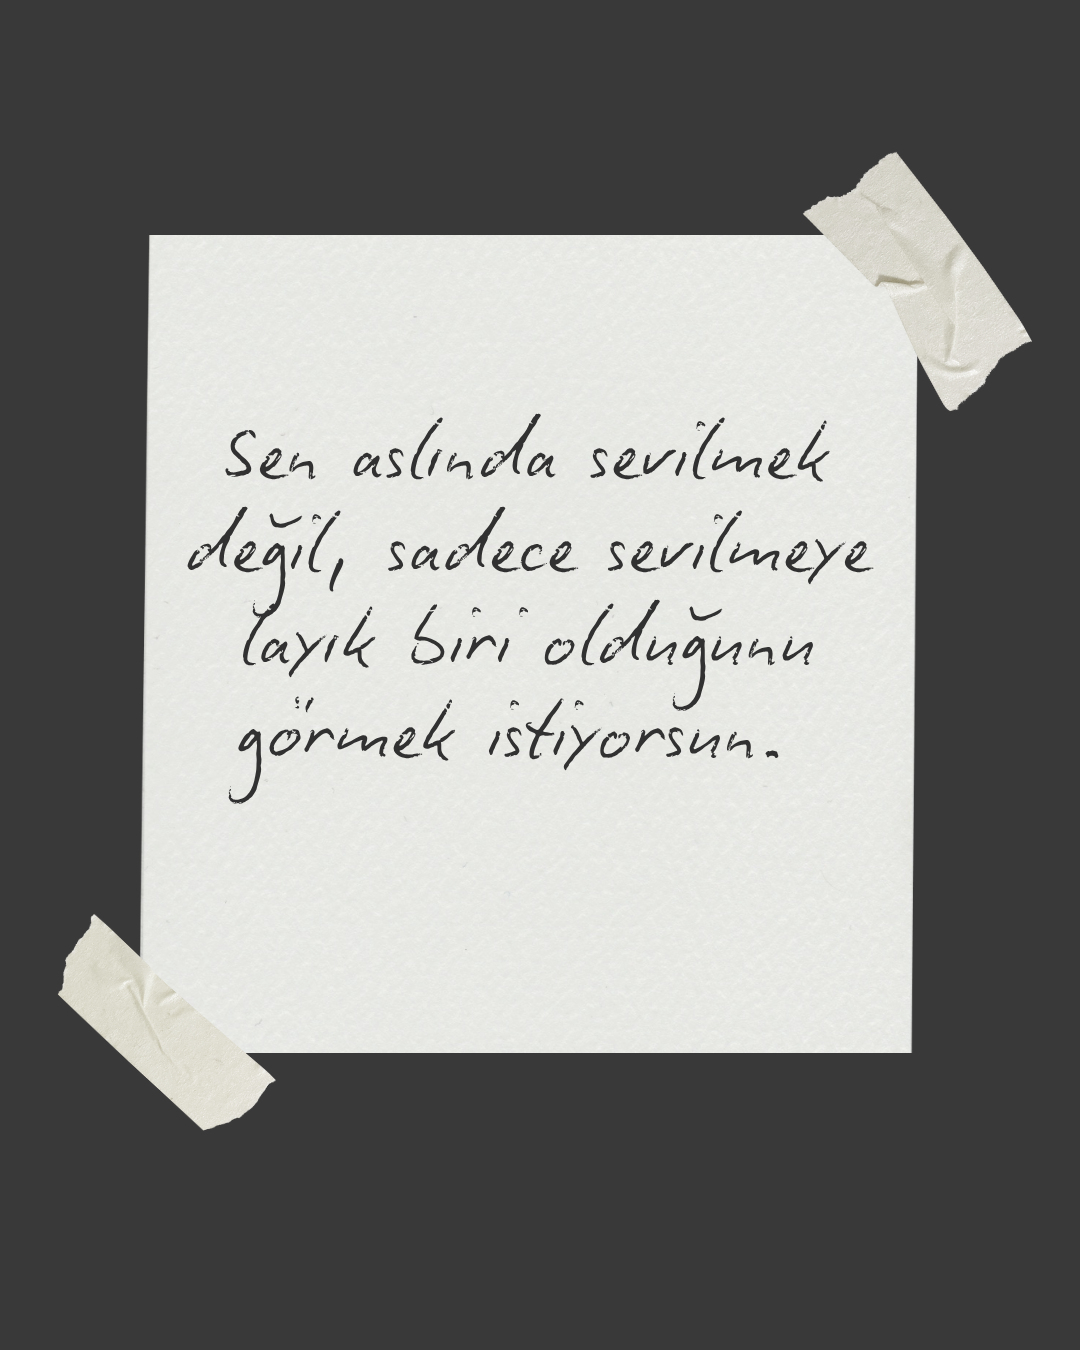 Sen aslında sevilmek
değil, sadece sevilmeye
layık biri olduğunu
görmek istiyorsun.